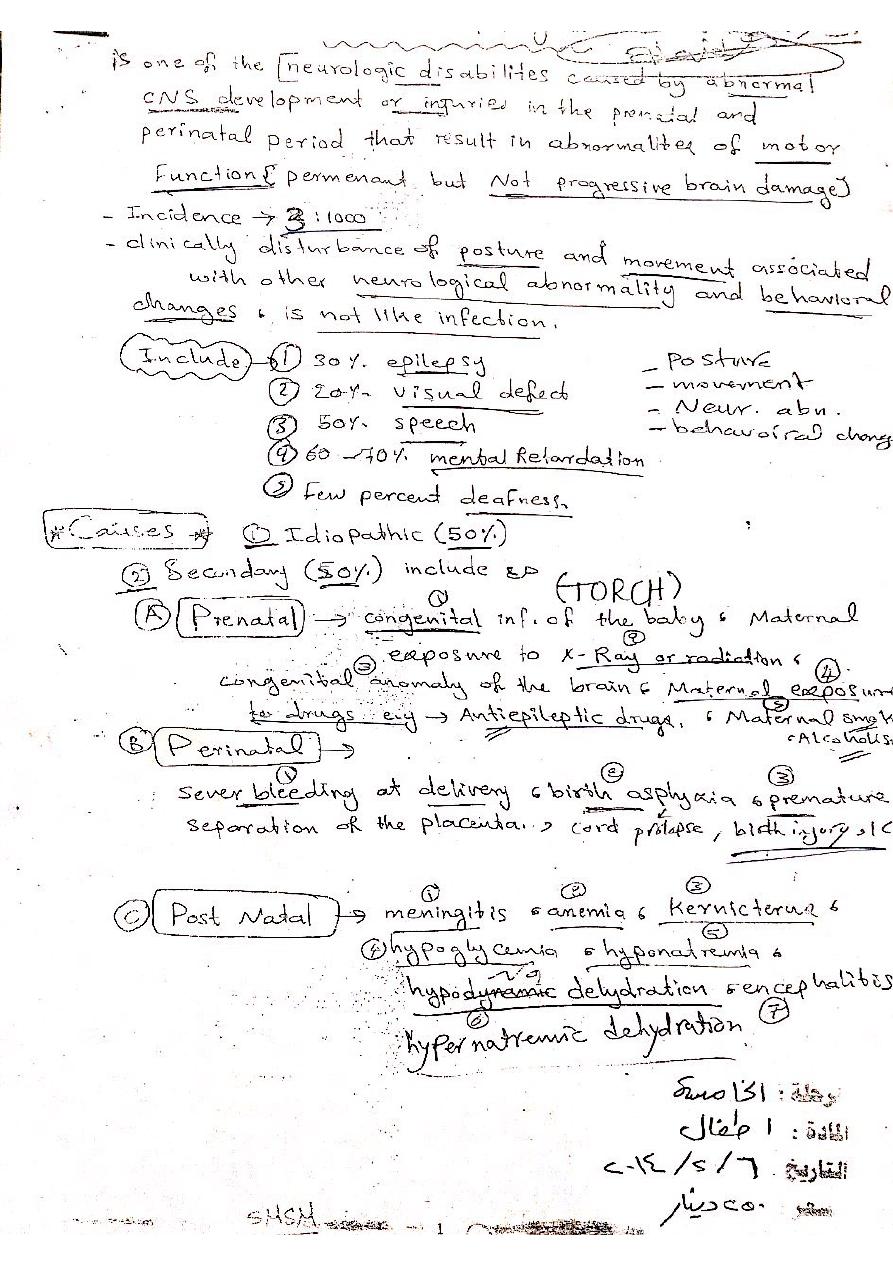 is one of the [neurologic disabilites caused by abnormal
CNS development or injuries in the prenatal and
perinatal period that result in abnormalites of motor
Function{ permenant but Not progressive brain damage}
- Incidence → 3 : 1000
- clinically disturbance of posture and movement associated
with other neurological abnormality and behavioral
changes , is not like infection.
Include → ① 30 %. epilepsy
② 20 %. visual defect
③ 50%. speech
④ 60 - 70% mental Retardation
⑤ Few percent deafness.
- Posture
- movement
- Neur. abn.
- behavoiral chang
* Causes * ① Idiopathic (50%)
② Secundary (50%) include
(TORCH)
Ⓐ Prenatal → ① congenital inf. of the baby , Maternal
② exposure to X-Ray or radiation ,
③ congenital anomaly of the brain , ④ Maternal exposur
to drugs e.g → Antiepileptic drugs. , ⑤ Maternal smok
, Alcoholis
Ⓑ Perinatal →
① sever bleeding at delivery , ② birth asphyxia , ③ premature
separation of the placenta. , cord prolapse , birth injury , IC
Ⓒ Post Natal → ① meningitis , ② anemia , ③ Kernicterus ,
④ hypoglycemia , ⑤ hyponatremia ,
dehydration , encephalitis
⑥ hypernatremic dehydration ⑦
مرحلة : الخامسة
المادة : اطفال
التاريخ ٦ / ٢ / ٢٠١٤
سعر ٢٥٠ دينار
SMSM
1